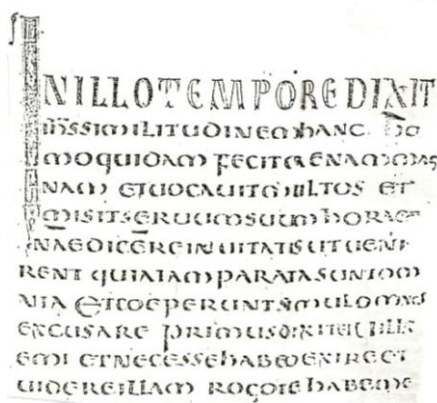 IN ILLO TEMPORE DIXIT
ihs SIMILITUDINEM hANC ho
MO QUIDAM FECIT CAENAM MAG
NAM ET VOCAVIT MULTOS ET
MISIT SERUUM SUUM hORA CE
NAE DICERE INUITATIS UT UENI
RENT QUIA IAM PARATA SUNT OM
NIA ET COEPERUNT SIMUL OMNES
EXCUSARE PRIMUS DIXIT EI UILLA
EMI ET NECESSE hABEO EXIRE ET
UIDERE ILLAM ROGO TE hABE ME